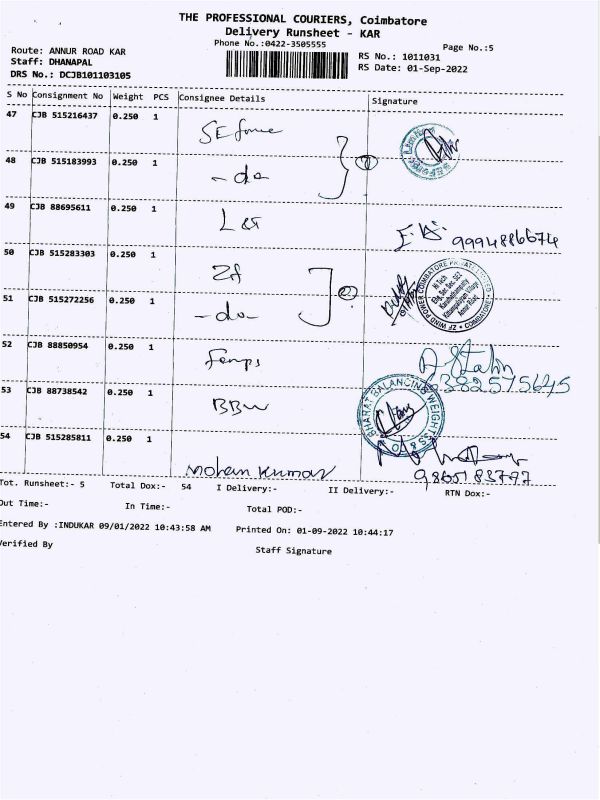 THE PROFESSIONAL COURIERS, Coimbatore
Delivery Runsheet - KAR
Phone No.:0422-3505555
Page No.:5
Route: ANNUR ROAD KAR
RS No.: 1011031
Staff: DHANAPAL
RS Date: 01-Sep-2022
DRS No.: DCJB101103105
S No Consignment No Weight PCS Consignee Details Signature
47 CJB 515216437 0.250 1
48 CJB 515183993 0.250 1 -do-
49 CJB 88695611 0.250 1 L&T 9994886674
50 CJB 515283303 0.250 1 Zf
51 CJB 515272256 0.250 1 -do-
ZF WIND POWER COIMBATORE PRIVATE LIMITED
COIMBATORE
52 CJB 88850954 0.250 1 6382575645
53 CJB 88738542 0.250 1 BBW
BHARAT BALANCING WEIGHTSS & CO
54 CJB 515285811 0.250 1 Mohan Kumar 9865183797
Tot. Runsheet:- 5 Total Dox:- 54 I Delivery:- II Delivery:- RTN Dox:-
Out Time:- In Time:- Total POD:-
Entered By :INDUKAR 09/01/2022 10:43:58 AM Printed On: 01-09-2022 10:44:17
Verified By Staff Signature